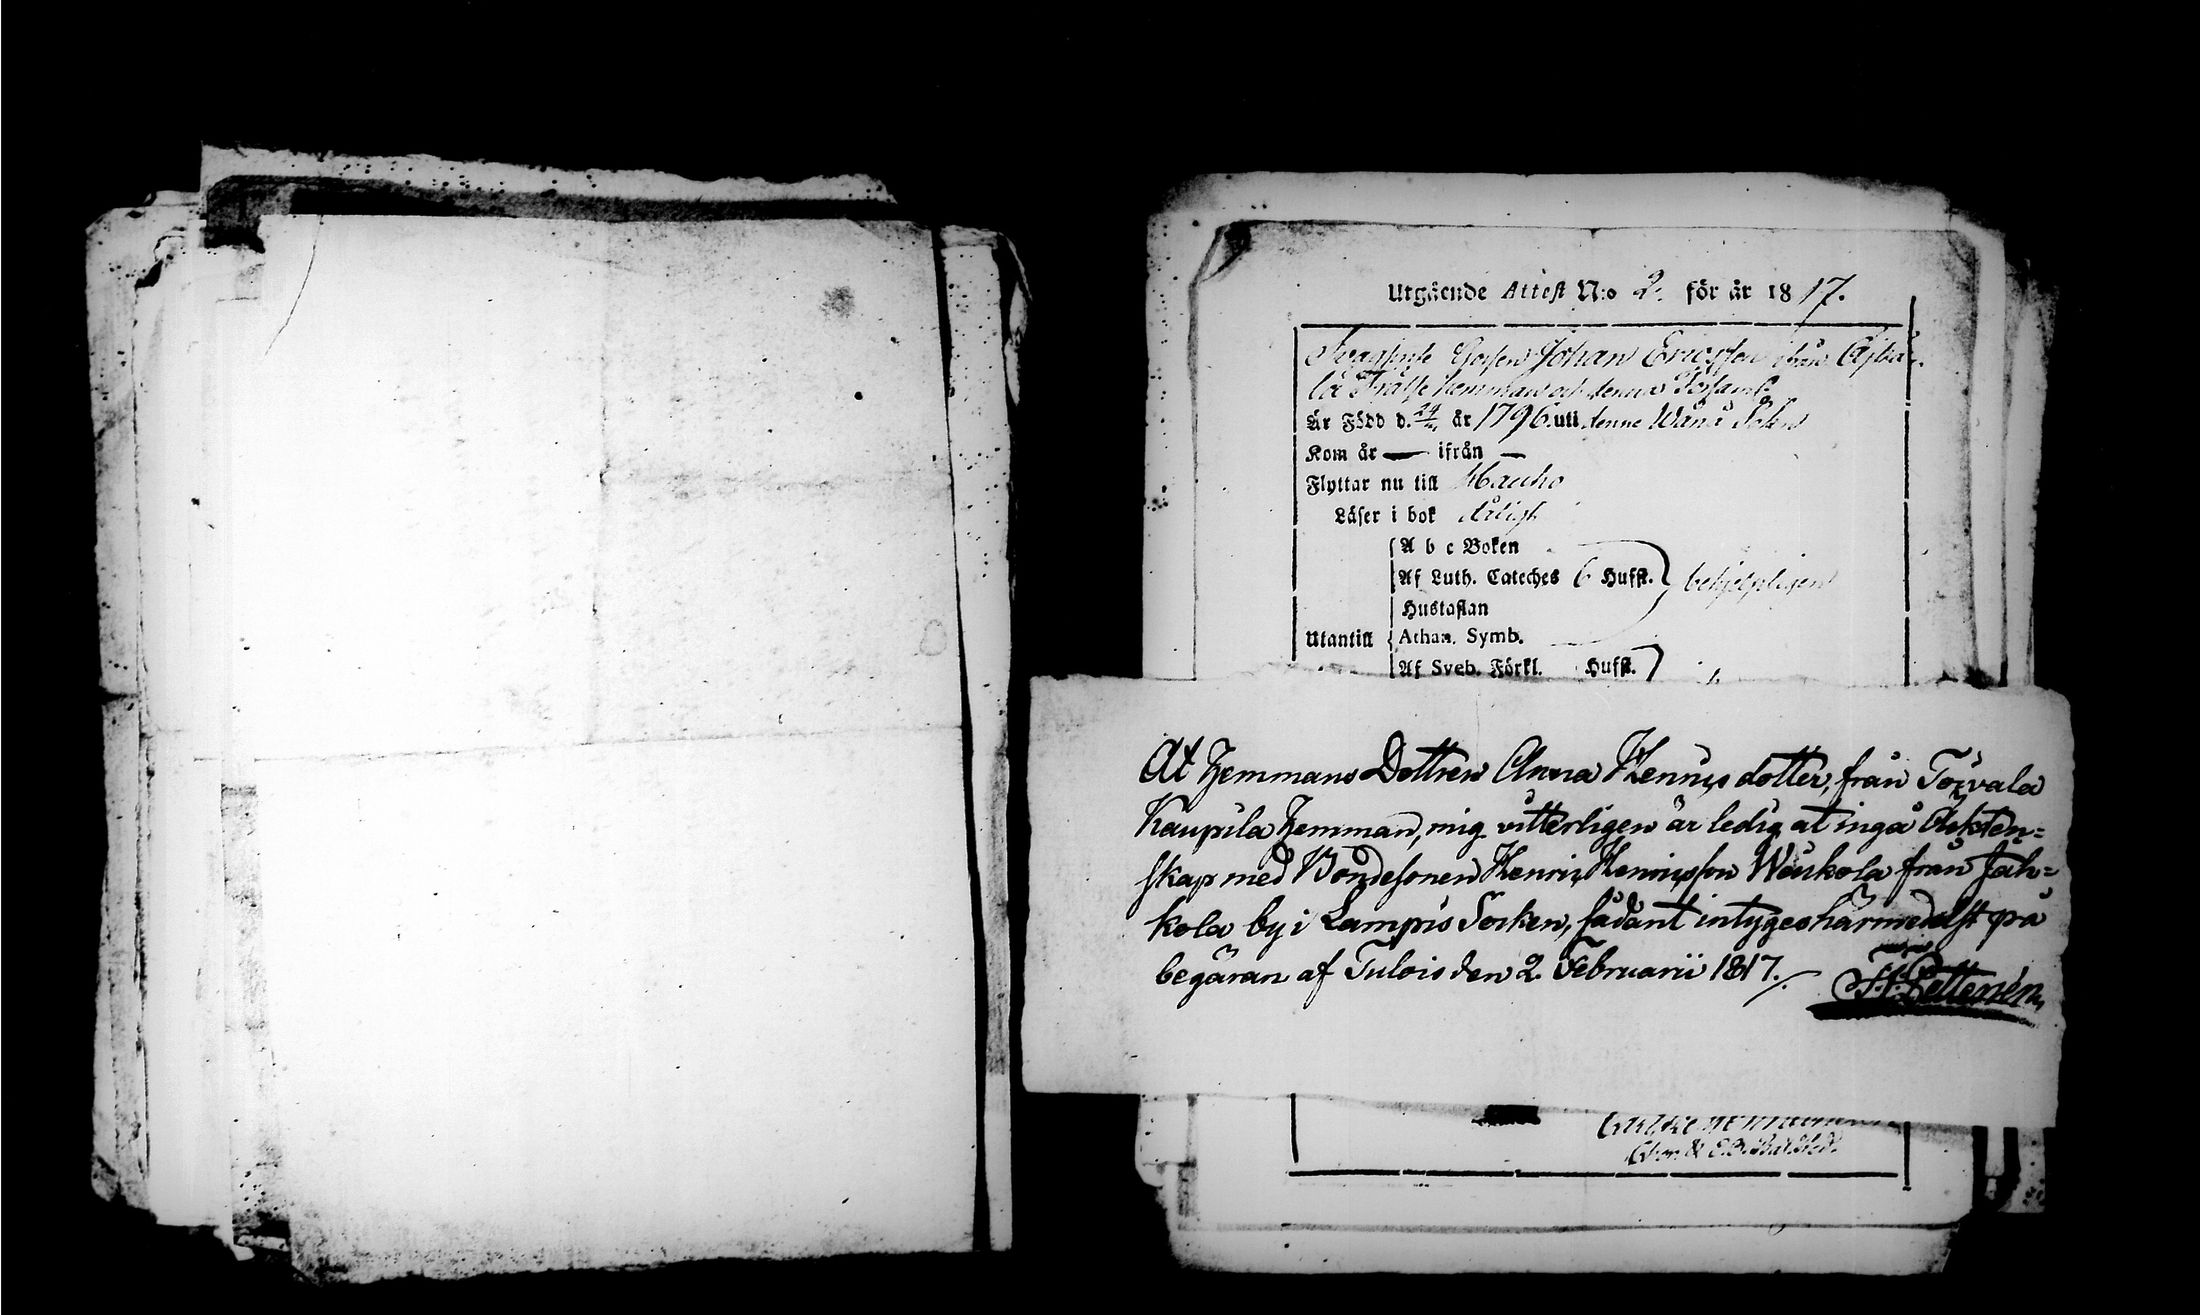 Utgående Attest N:o 2. för år 1817.
Johan Ericsson ifrån
Frälse hemman och denna
Är Född d. 24 år 1796. uti denne Wånå Sokn
Kom år — ifrån —
Flyttar nu till Hauho
Läser i bok
A b c Boken
Af Luth. Cateches 6 Hufst. behjelpligen
Hustaflan
Utantill Athan. Symb.
Af Sveb. Förkl. Hufst.
At Hemmans Dottren Anna Henricsdotter, från Toivala
Kaupila Hemman, mig vitterligen är ledig at ingå Ækten=
skap med Bondesonen Henric Henricsson Wäukola från Jah=
kola by i Lampis Socken, sådant intyges härmedelst på
begäran af Tulois den 2. Februarii 1817.